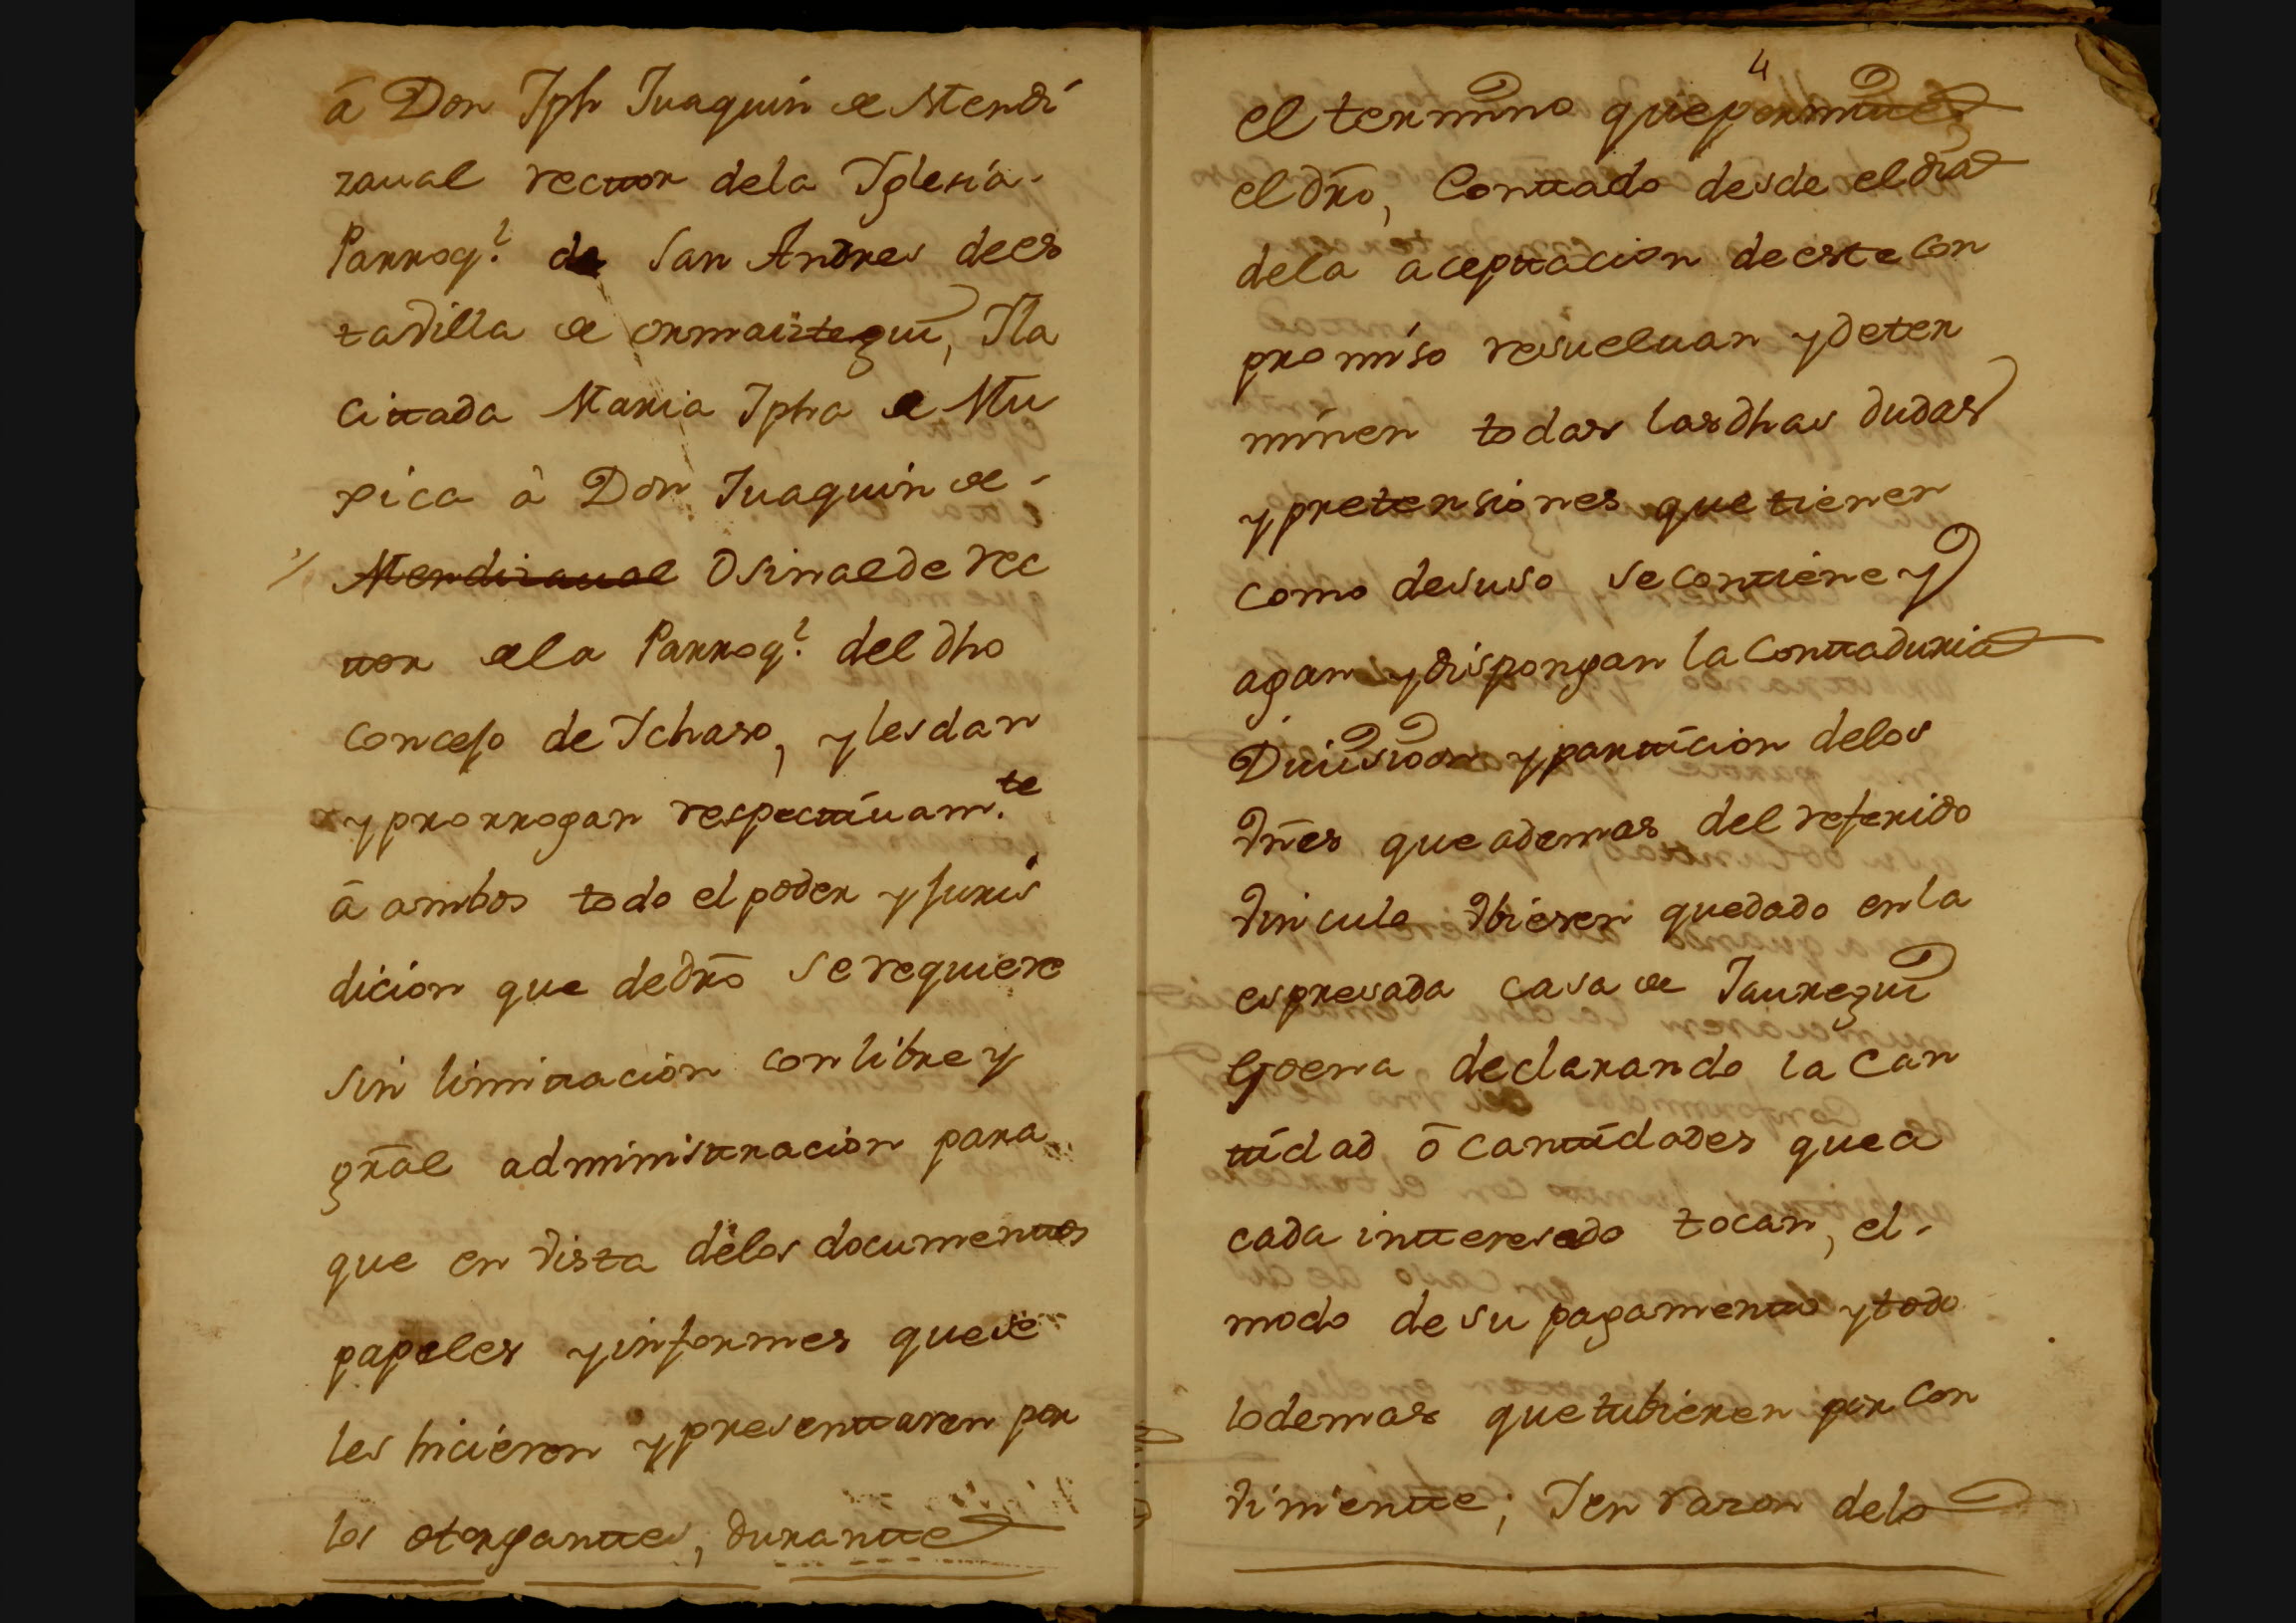 â Don Jph Juaquin de Mendi
zaual rector dela Iglesia
Parroql. de San Andres dees
ta Villa de ormaiztegui, Ila
citada Maria Jpha de Mu
xica â Don Juaquin de
Mendizaual Osinalde rec
tor dela Parroql. del dho
concejo de Ichaso, y les dan
y prorrogan respectiuam.te
â ambos todo el poder y juris
dicion que de dro se requiere
sin limitacion con libre y
gral administracion para
que en vista delos documentos
papeles y informes que se
les hicieron y presentaren por
los otorgantes, durante
4
el termino que permite
el dro, Contado desde el dia
dela aceptacion de este Con
promiso resueluan y deter
minen todas las dhas dudas
y pretensiones que tienen
como desuso se contiene y
agan y dispongan la Contaduria
Diuision y particion delos
Vnes que ademas del referido
Vinculo Vbiesen quedado en la
espresada casa de Jauregui
Goena declarando la Can
tidad ô Cantidades que a
cada interesado tocan, el
modo de su pagamento y todo
lo demas que tubieren por con
Vimiente; Ien razon delo